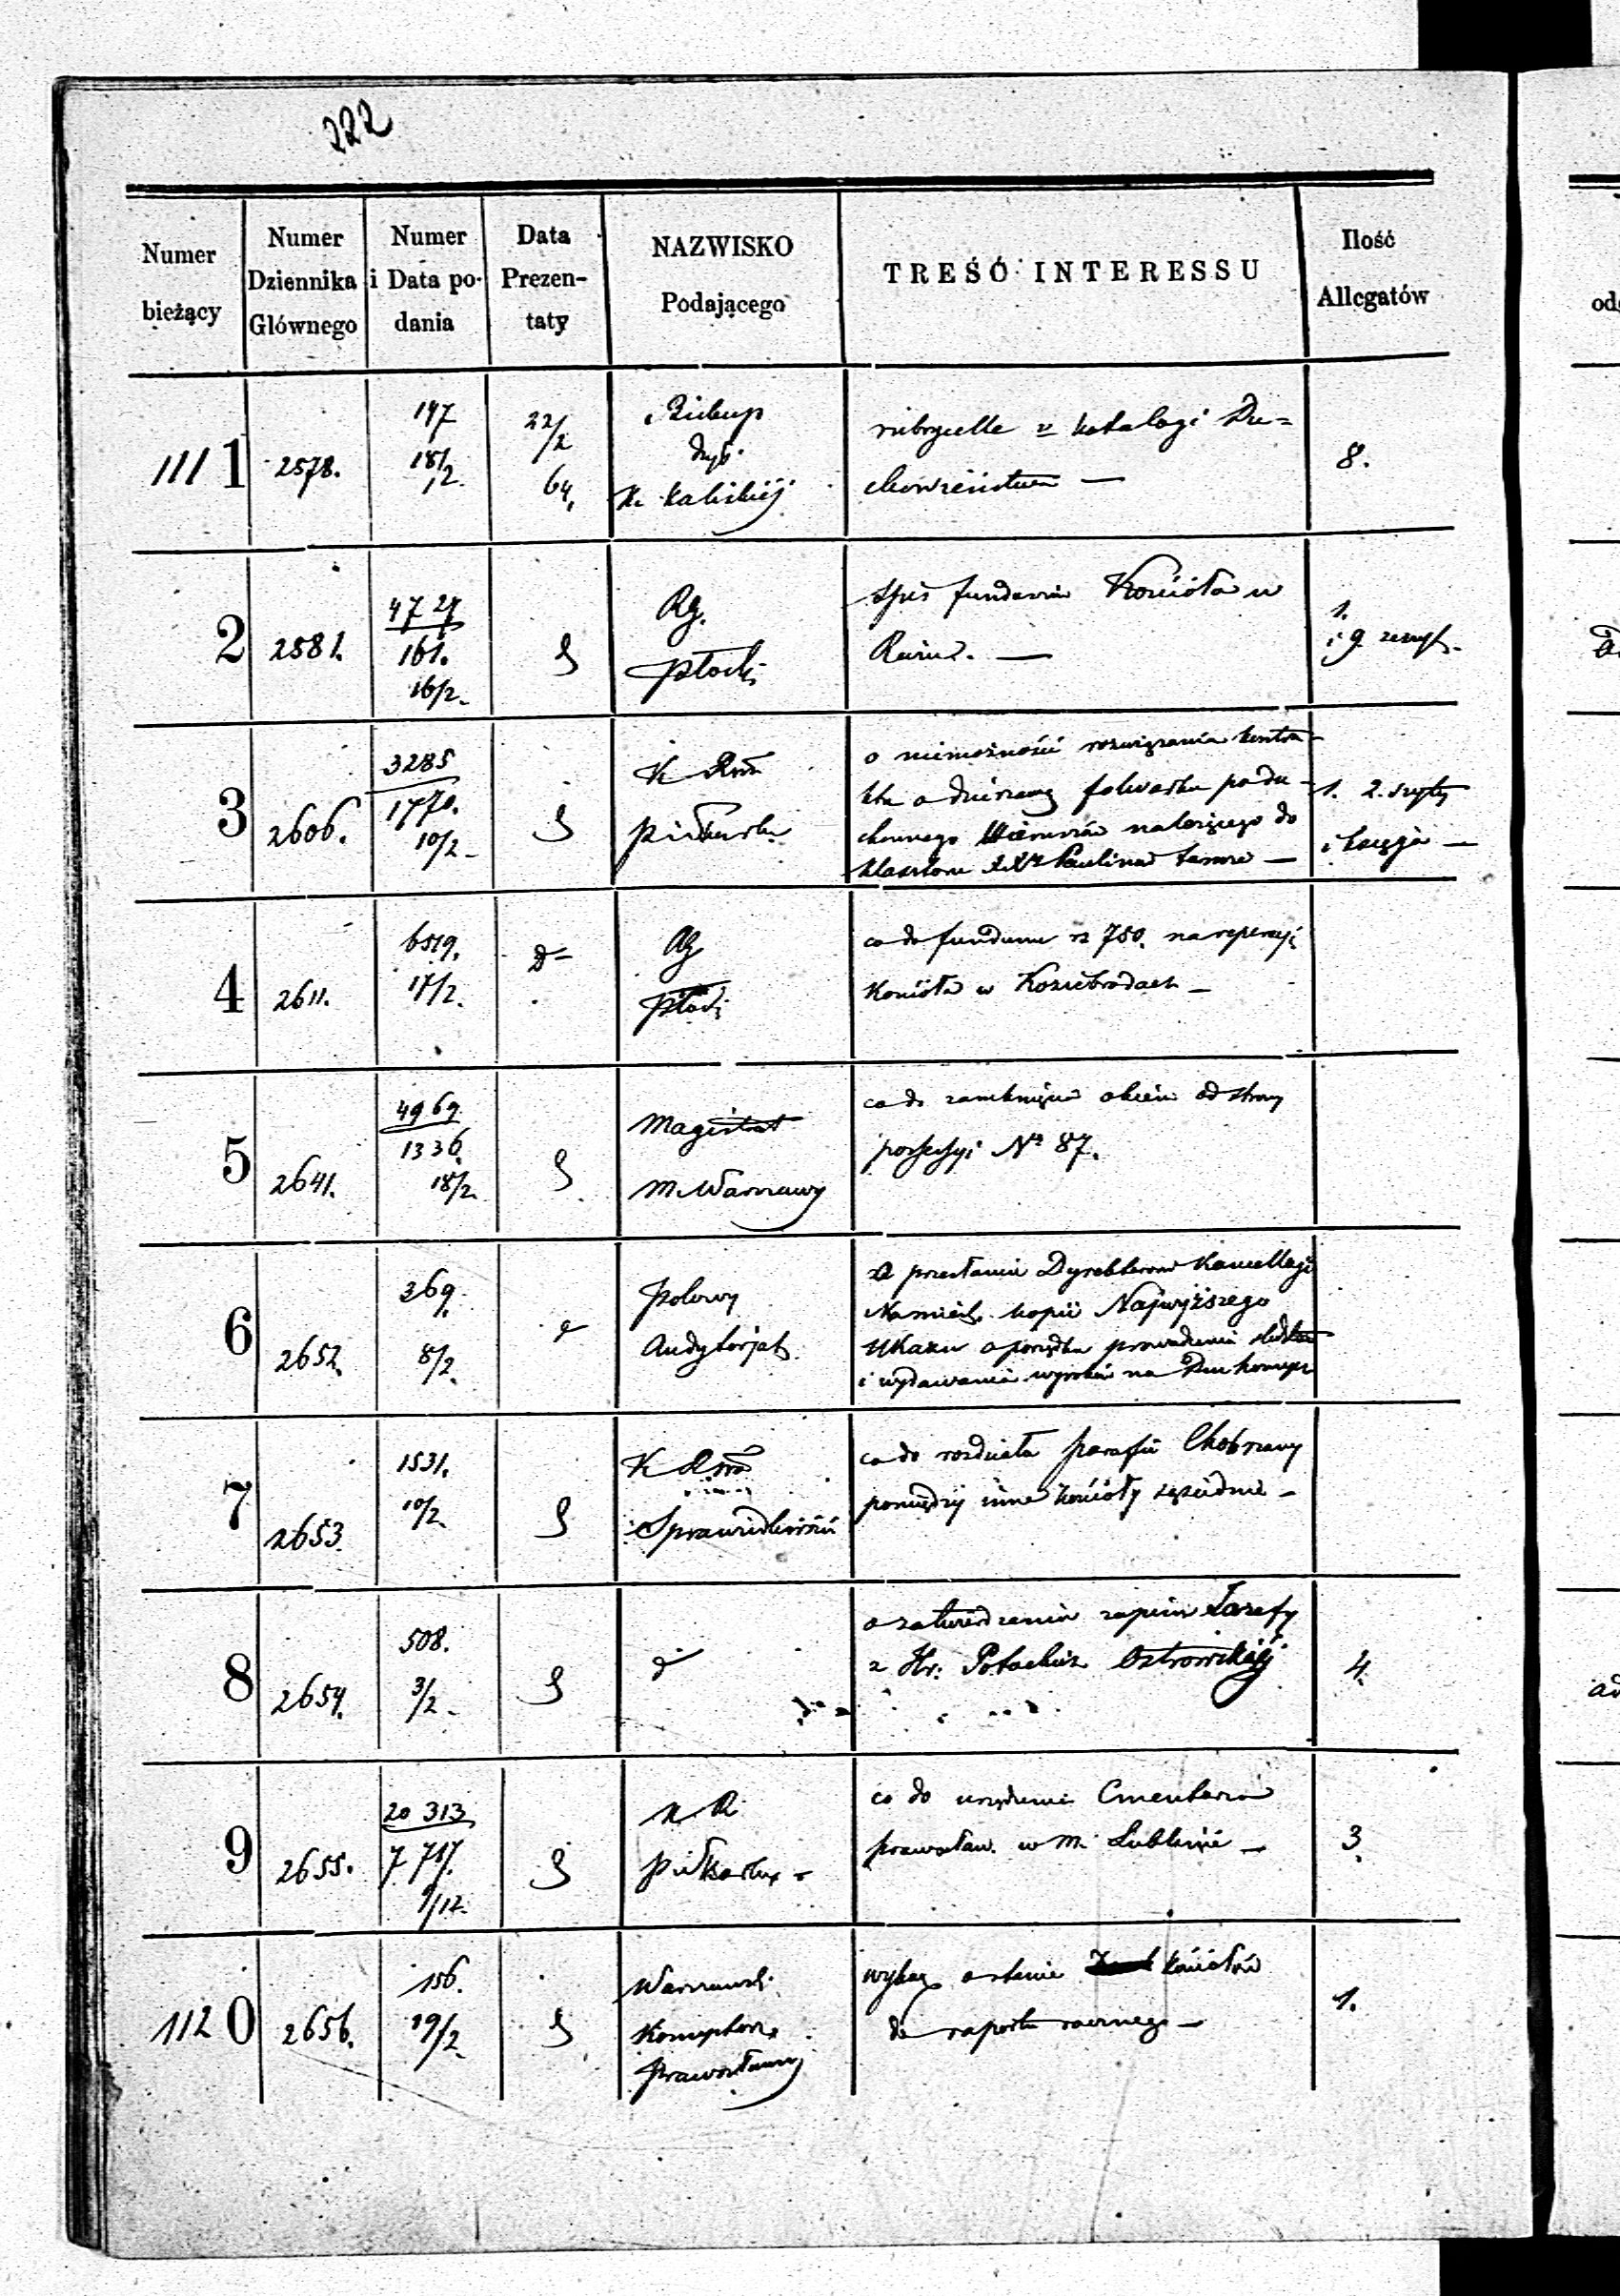 222
Numer bieżący
Numer Dziennika Głównego
Numer i Data podania
Data Prezentaty
NAZWISKO Podającego
TREŚĆ INTERESSU
Ilość Allegatów
1111
2578.
197
18/2.
22/2
64.
Biskup
Dyé.
K. Kaliskiéj
rubrycelle i katalogi Du=
chowieństwa —
8.
2
2581.
4727
161.
16/2.
Rg.
Płocki
Spis fundorum Kościoła w
1.
i 9 zeszyt.
3
2606.
3285
1770.
10/2
K
o niemożności rozwiązania kontra-
ktu o dzierżawę folwarku podu-
chownego należącego do
klasztoru Paulinów tamże —
1. 2. szyty
i księga —
4
2611.
6519.
17/2.
Rg
Płocki
co do funduszu rs 750. na reperacyi
Kościoła w Koziebrodach —
5
2641.
4969
1336.
18/2.
Magistrat
M. Warszawy
co do zamknięcia okien od strony
possessyi No 87.
6
2652.
369.
8/2.
Polowy
Audytorjat.
przesłaniu Dyrektorowi Kancellaryi
Namiest. kopii Najwyższego
Ukazu o porządku prowadzenia śledztw
i wydawania wyroków na Duchownych
7
2653
1531.
10/2.
K
Sprawiedliwości
co do rozdziału parafii Chobrzany
pomiędzy inne kościoły sąsiednie —
8
2654.
508.
3/2.
o zatwierdzenie zapisu Józefy
z Hr: Potockich Ostrowskiéj
4.
9
2655.
20313
7717.
9/12.
K R
co do urządzenia Cmentarza
prawosław. w m. Lublinie —
3.
1120
2656.
156.
19/2.
Warszawski
Konsystorz
Prawosławny
wykaz o stanie kościołów
do raportu rocznego —
1.